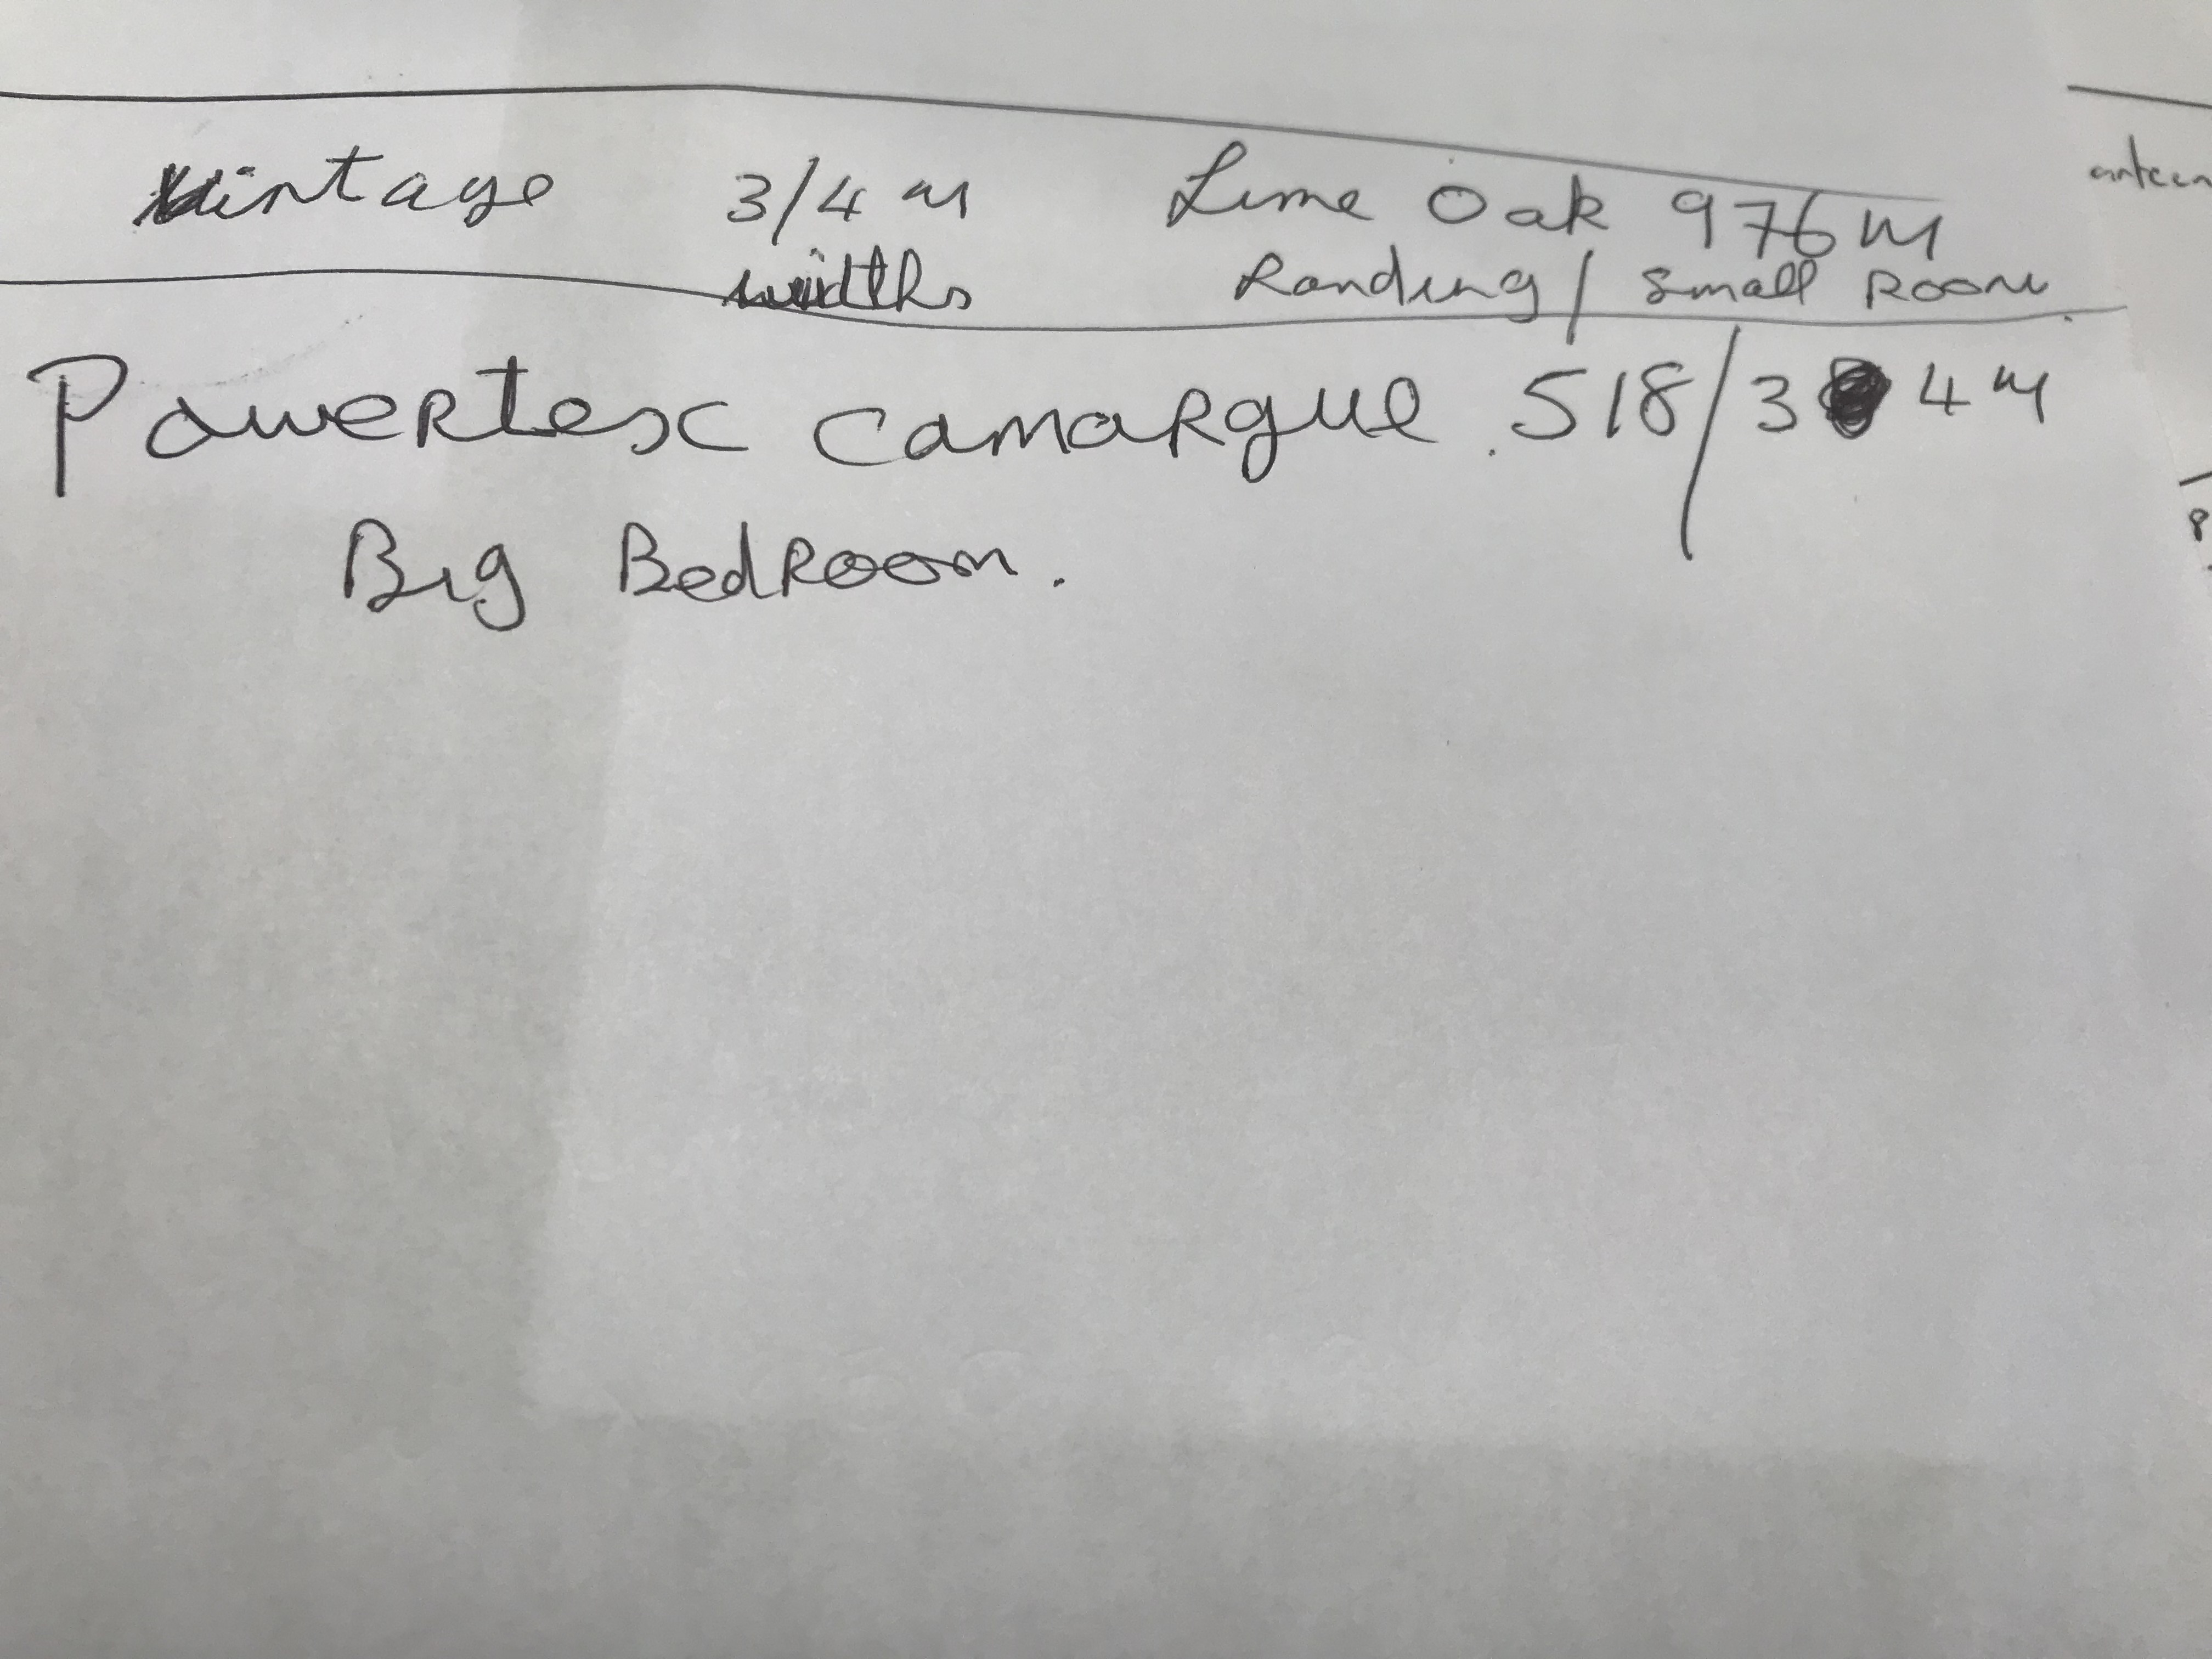 Vintage 3/4 m Lime Oak 976M
widths Landing / Small Room
Powertex Camargue . 518/3 4 m
Big BedRoom.